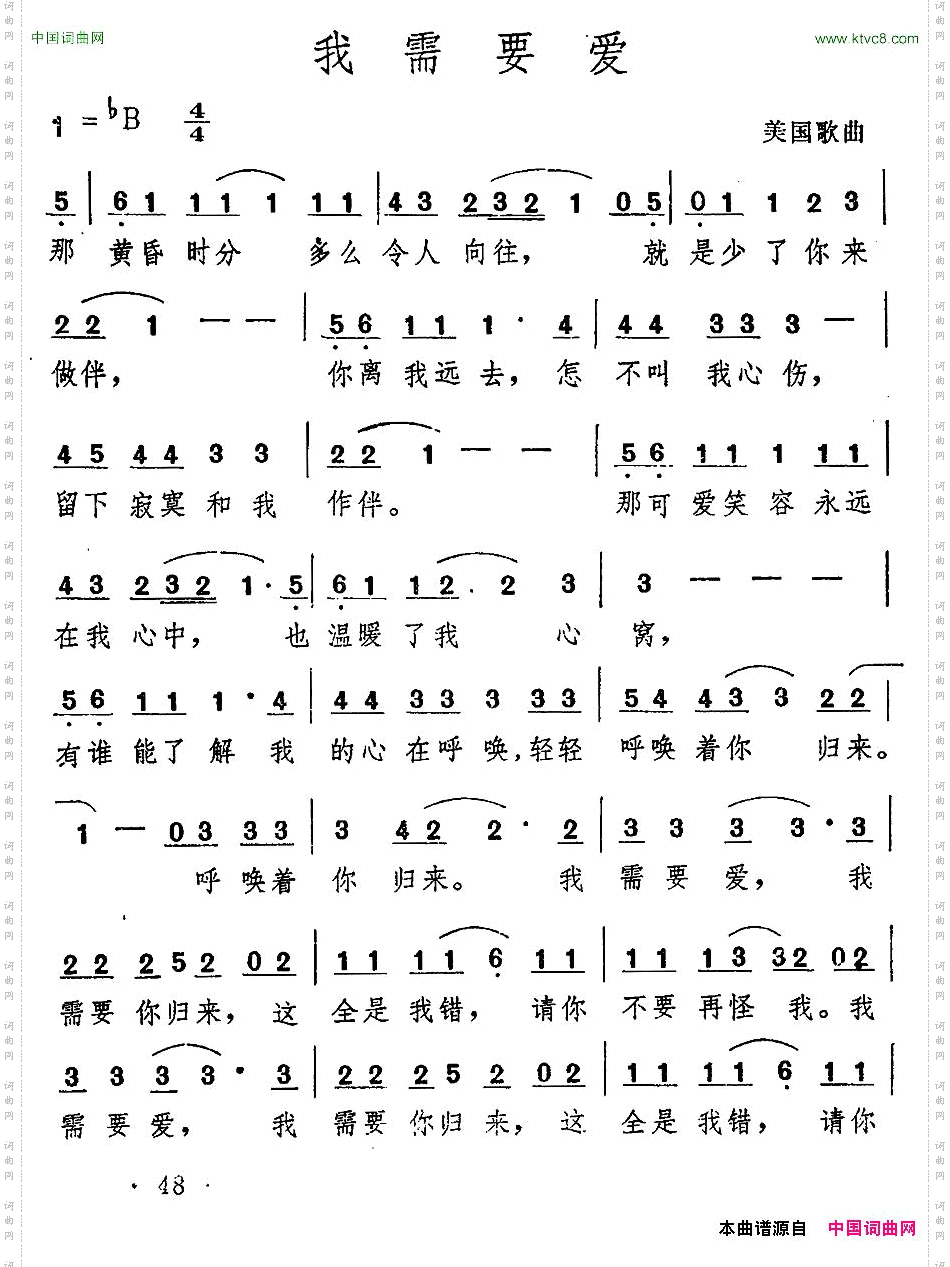 中国词曲网 我需要爱 www.ktvc8.com
1 = ♭B 4/4 美国歌曲
5 | 6 1 1 1 1 1 1 | 4 3 2 3 2 1 0 5 | 0 1 1 2 3 |
那 黄昏 时分 多么 令人 向往， 就 是少 了你来
2 2 1 — — | 5 6 1 1 1 · 4 | 4 4 3 3 3 — |
做伴， 你离 我远去，怎 不叫 我心伤，
4 5 4 4 3 3 | 2 2 1 — — | 5 6 1 1 1 1 1 |
留下 寂寞 和我 作伴。 那可 爱笑容永远
4 3 2 3 2 1 · 5 | 6 1 1 2 . 2 3 | 3 — — — |
在我 心中， 也 温暖了我 心 窝，
5 6 1 1 1 · 4 | 4 4 3 3 3 3 3 | 5 4 4 3 3 2 2 |
有谁 能了解 我 的心在呼唤,轻轻 呼唤着你 归来。
1 — 0 3 3 3 | 3 4 2 2 · 2 | 3 3 3 3 · 3 |
呼唤着 你 归来。 我 需要 爱， 我
2 2 2 5 2 0 2 | 1 1 1 1 6 1 1 | 1 1 1 3 3 2 0 2 |
需要 你归来，这 全是我错， 请你 不要 再怪 我。我
3 3 3 3 · 3 | 2 2 2 5 2 0 2 | 1 1 1 1 6 1 1 |
需要爱， 我 需要 你归来，这 全是我错， 请你
· 48 ·
本曲谱源自 中国词曲网